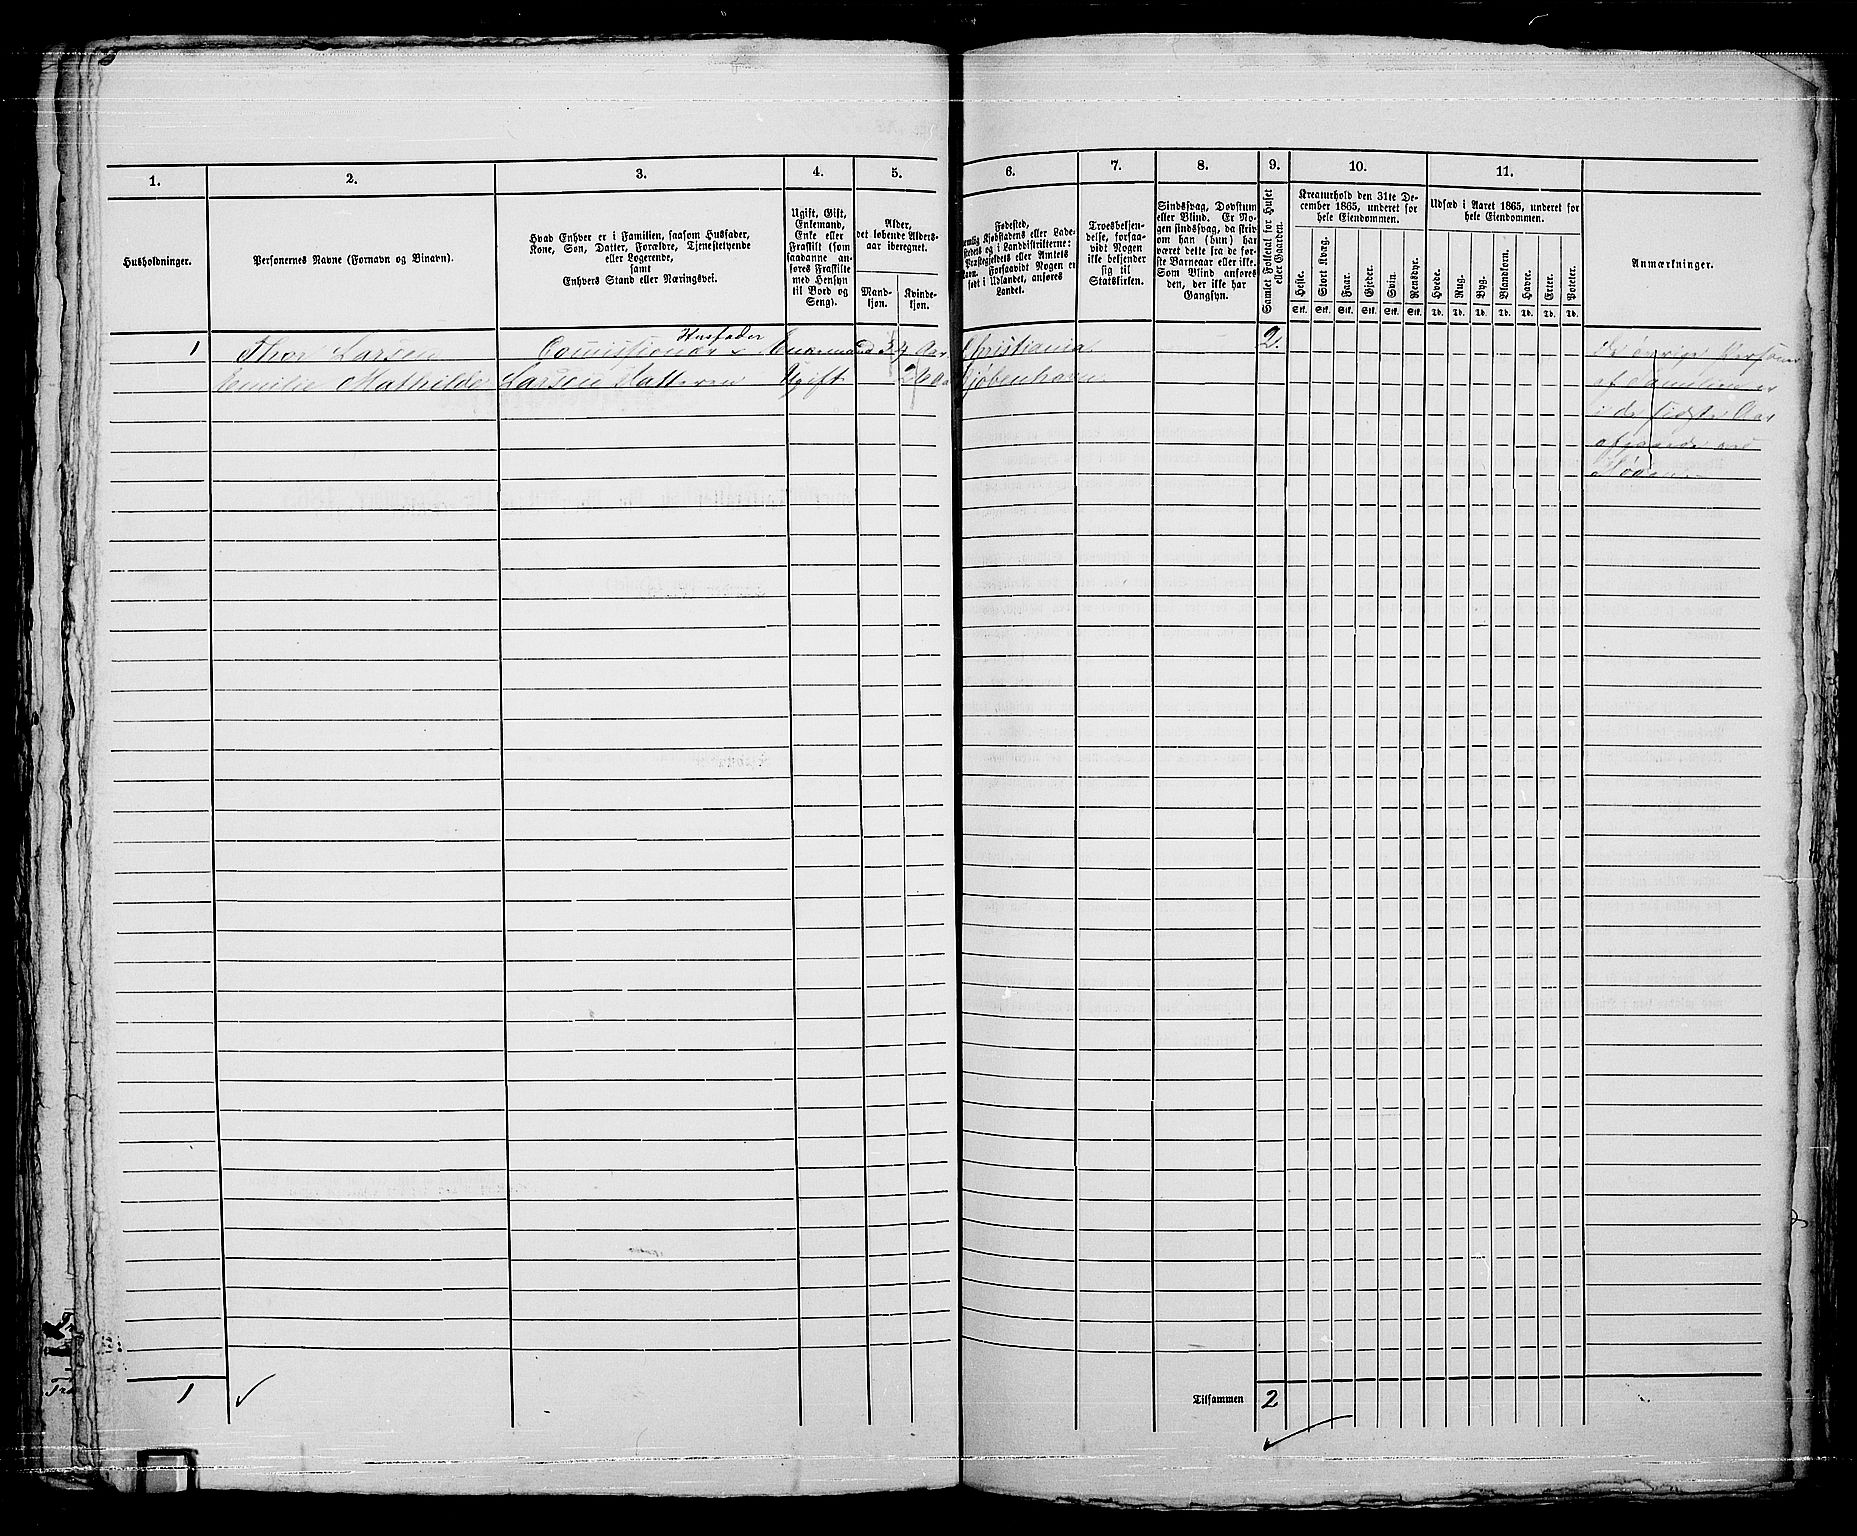 1. 2. 3. 4. 5. 6. 7. 8. 9. 10. 11.
Husholdninger.
Personernes Navne (Fornavn og Binavn).
Hvad Enhver er i Familien, saasom Husfader,
Kone, Søn, Datter, Forældre, Tjenestetyende
eller Logerende,
samt
Enhvers Stand eller Næringsvei.
Ugift, Gift,
Enkemand,
Enke eller
Fraskilt (som
saadanne an-
føres Fraskilte
med Hensyn
til Bord og
Seng).
Alder,
det løbende Alders-
aar iberegnet.
Mand-
kjøn.
Kvinde-
kjøn.
Fødested,
Kjøbstadens eller Lade-
stedets og i Landdistrikterne:
eller Amtets
Navn. Forsaavidt Nogen er
født i Udlandet, anføres
Landet.
Troesbekjen-
delse, forsaa-
vidt Nogen
ikke bekjender
sig til
Statskirken.
Sindssvag, Døvstum
eller Blind. Er No-
gen sindssvag, da skriv
om han (hun) har
været dette fra de før-
ste Barneaar eller ikke.
Som Blind anføres
den, der ikke har
Gangsyn.
Samlet Folketal for Huset
eller Gaarden.
Kreaturhold den 31te De-
cember 1865, underet for
hele Eiendommen.
Heste. Stort Kvæg. Faar. Gjeder. Svin. Rensdyr.
Stk. Stk. Stk. Stk. Stk. Stk.
Udsæd i Aaret 1865, underet for
hele Eiendommen.
Hvede. Rug. Byg. Blandkorn. Havre. Erter. Poteter.
Td. Td. Td. Td. Td. Td. Td.
Anmærkninger.
Husfader
1 Thor Larsen Enkemand 34 Aar Christiania 2.
Emilie Mathilde Larsen Datteren Ugift 2 Kjøbenhavn
De øvrige Personer
af Familien er
i de sidste Aar
ved
Døden
1
Tilsammen 2